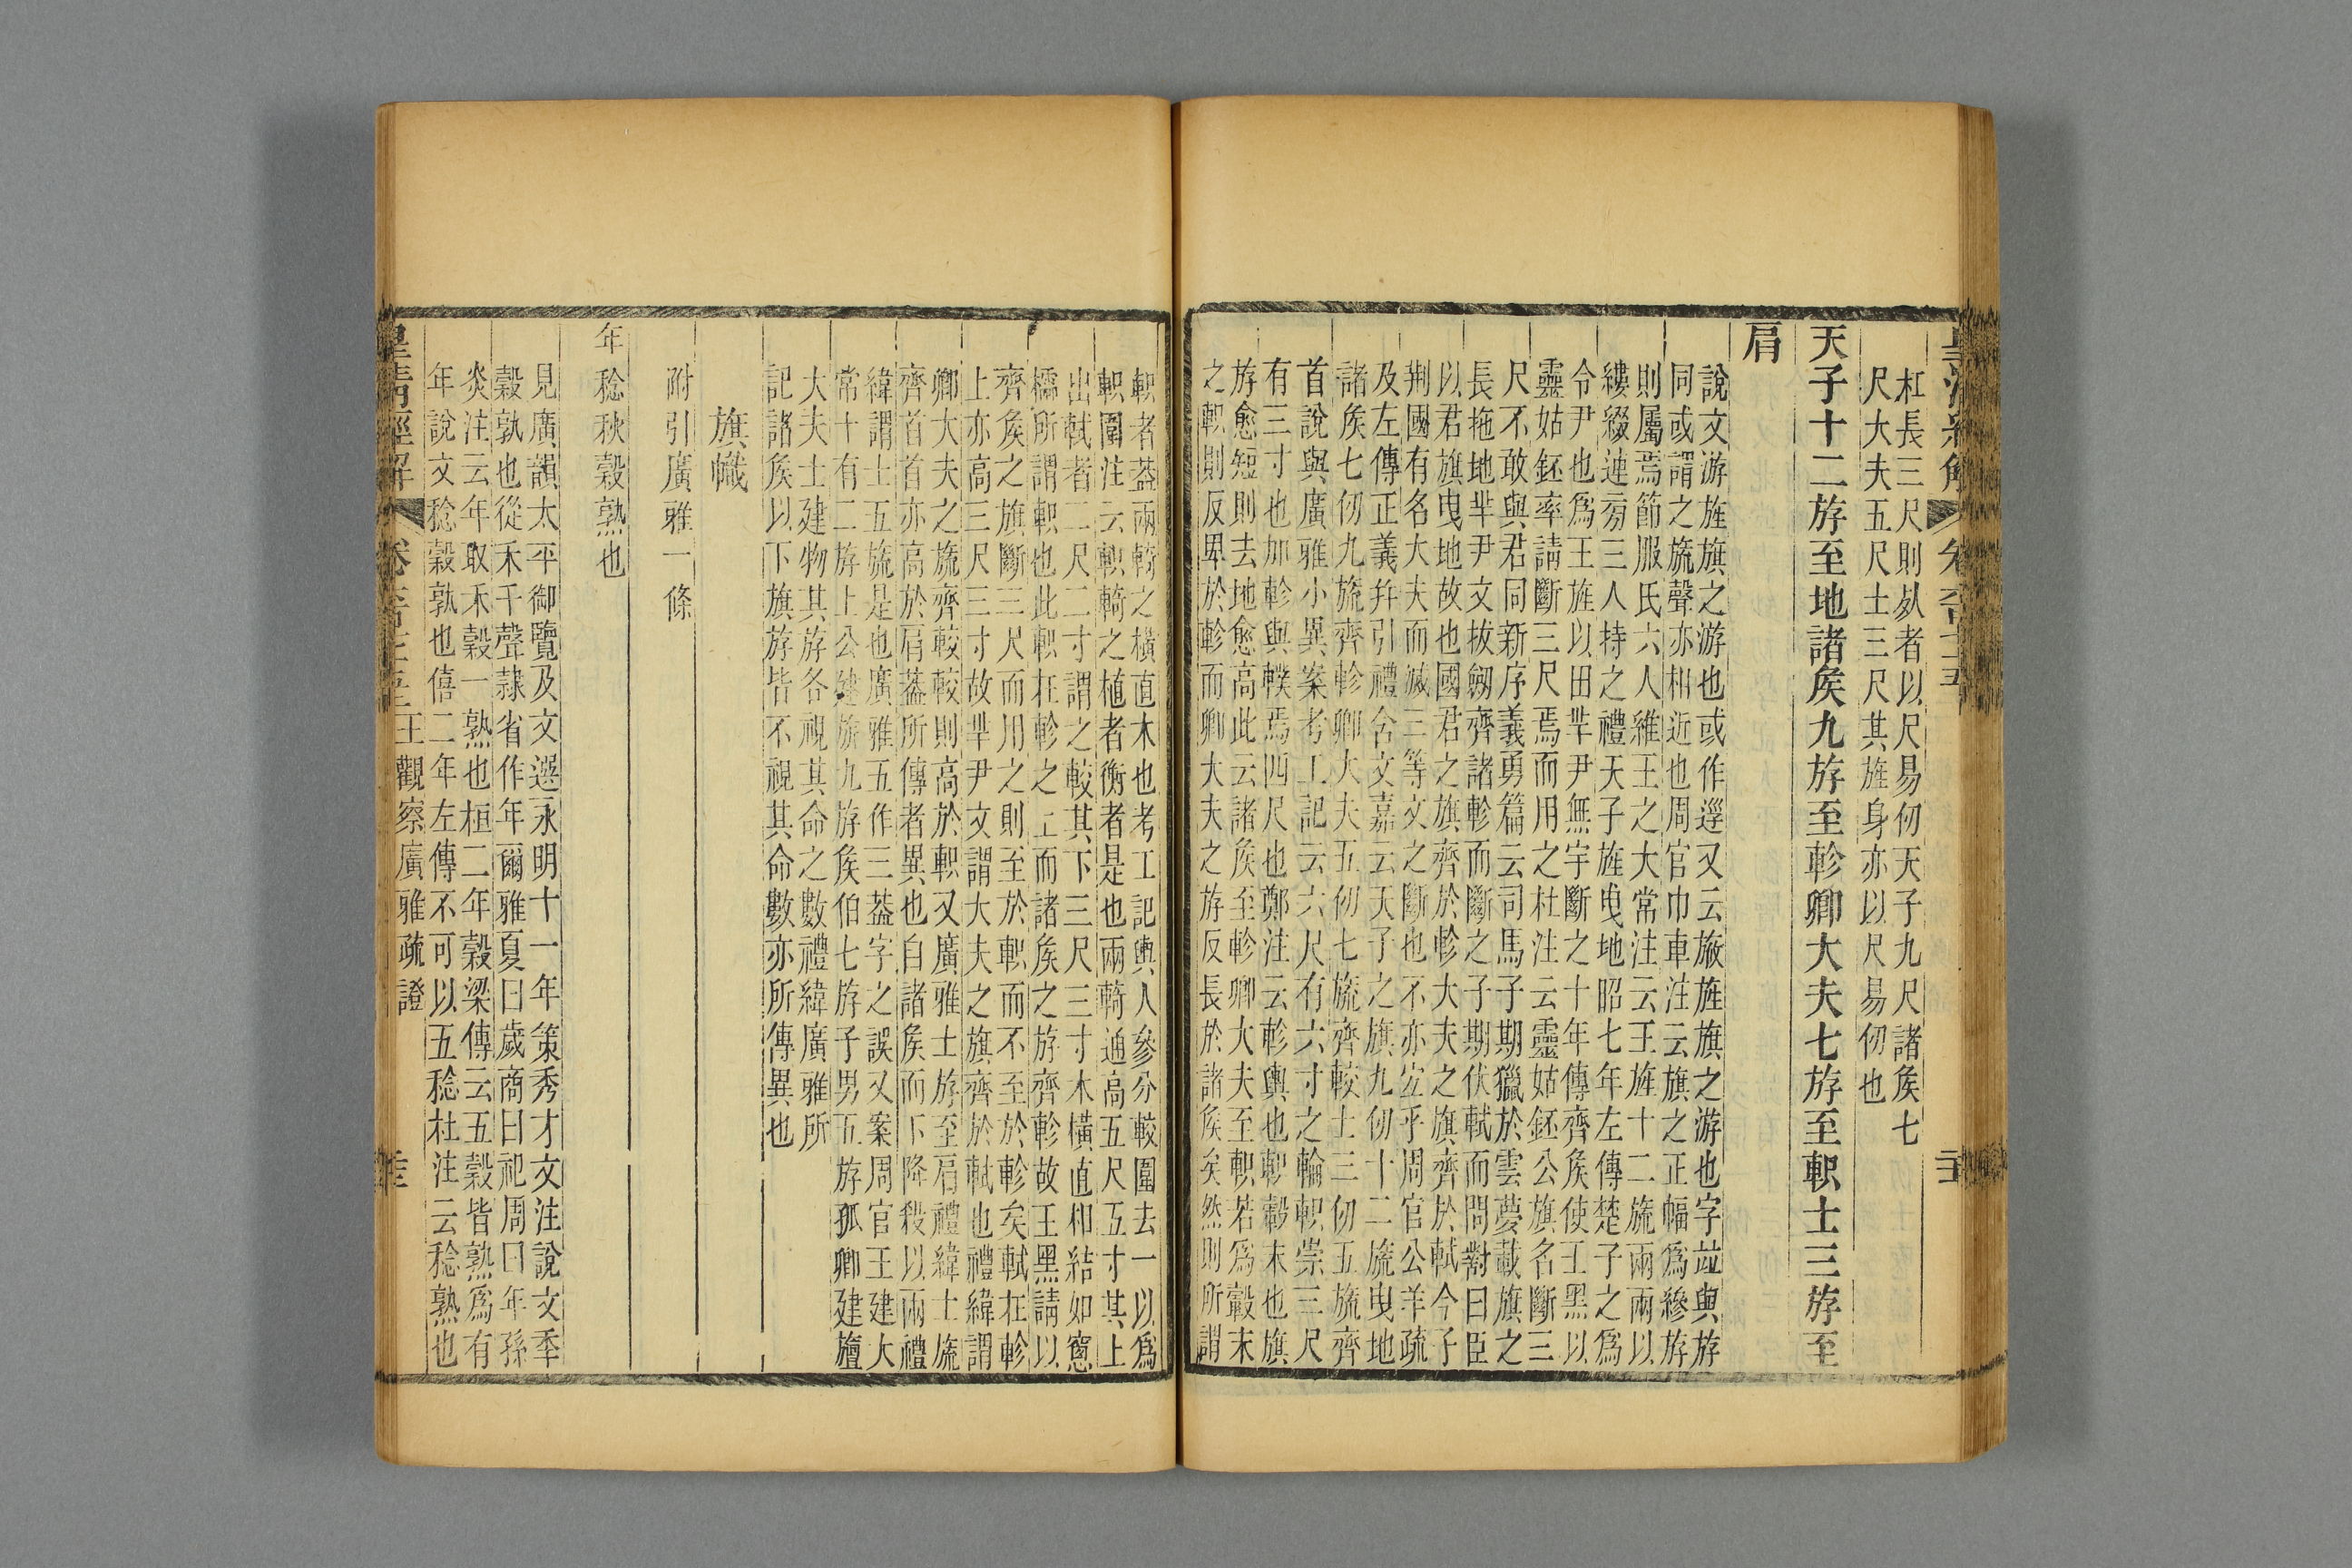 杠長三尺則㫃者以尺易仞天子九尺諸矦七
尺大夫五尺士三尺其旌身亦以尺易仞也
天子十二斿至地諸矦九斿至軫卿大夫七斿至軹士三斿至
肩
說文游旌旗之游也或作遊又云㫍旌旗之游也字竝與斿
同或謂之旒聲亦相近也周官巾車注云旗之正幅爲縿斿
則屬焉節服氏六人維王之大常注云王旌十二旒兩兩以
縷綴連㫄三人持之禮天子旌曳地昭七年左傳楚子之爲
令尹也爲王旌以田芉尹無宇斷之十年傳齊矦使王黑以
靈姑銔率請斷三尺焉而用之杜注云靈姑銔公旗名斷三
尺不敢與君同新序義勇篇云司馬子期獵於雲夢載旗之
長拖地芉尹文拔劒齊諸軫而斷之子期伏軾而問對曰臣
以君旗曳地故也國君之旗齊於軫大夫之旗齊於軾今子
荆國有名大夫而滅三等文之斷也不亦宐乎周官公羊疏
及左傳正義幷引禮含文嘉云天子之旗九仞十二旒曳地
諸矦七仞九旒齊軫卿大夫五仞七旒齊較士三仞五旒齊
首說與廣雅小異案考工記云六尺有六寸之輪軹崇三尺
有三寸也加軫與轐焉四尺也鄭注云軫輿也軹轂末也旗
斿愈短則去地愈高此云諸矦至軫卿大夫至軹若爲轂末
之軹則反卑於軫而卿大夫之斿反長於諸矦矣然則所謂
軹者葢兩輢之橫直木也考工記輿人參分較圍去一以爲
軹圍注云軹輢之植者衡者是也兩輢通高五尺五寸其上
出軾者二尺二寸謂之較其下三尺三寸木橫直相結如窻
櫺所謂軹也此軹在軫之上而諸矦之斿齊軫故王黑請以
齊矦之旗斷三尺而用之則至於軹而不至於軫矣軾在軫
上亦高三尺三寸故芉尹文謂大夫之旗齊於軾也禮緯謂
卿大夫之旒齊較較則高於軹又廣雅士斿至肩禮緯士旒
齊首首亦高於肩葢所傳者異也自諸矦而下降殺以兩禮
緯謂士五旒是也廣雅五作三葢字之誤又案周官王建大
常十有二斿上公建旂九斿矦伯七斿子男五斿孤卿建旜
大夫士建物其斿各視其命之數禮緯廣雅所
記諸矦以下旗斿皆不視其命數亦所傳異也
旗幟
附引廣雅一條
年稔秋穀熟也
見廣韻太平御覽及文選永明十一年策秀才文注說文秊
穀孰也從禾千聲隷省作年爾雅夏曰歲商曰祀周曰年孫
炎注云年取禾穀一熟也桓二年穀梁傳云五穀皆熟爲有
年說文稔穀孰也僖二年左傳不可以五稔杜注云稔熟也
皇淸經解
王觀察廣雅疏證